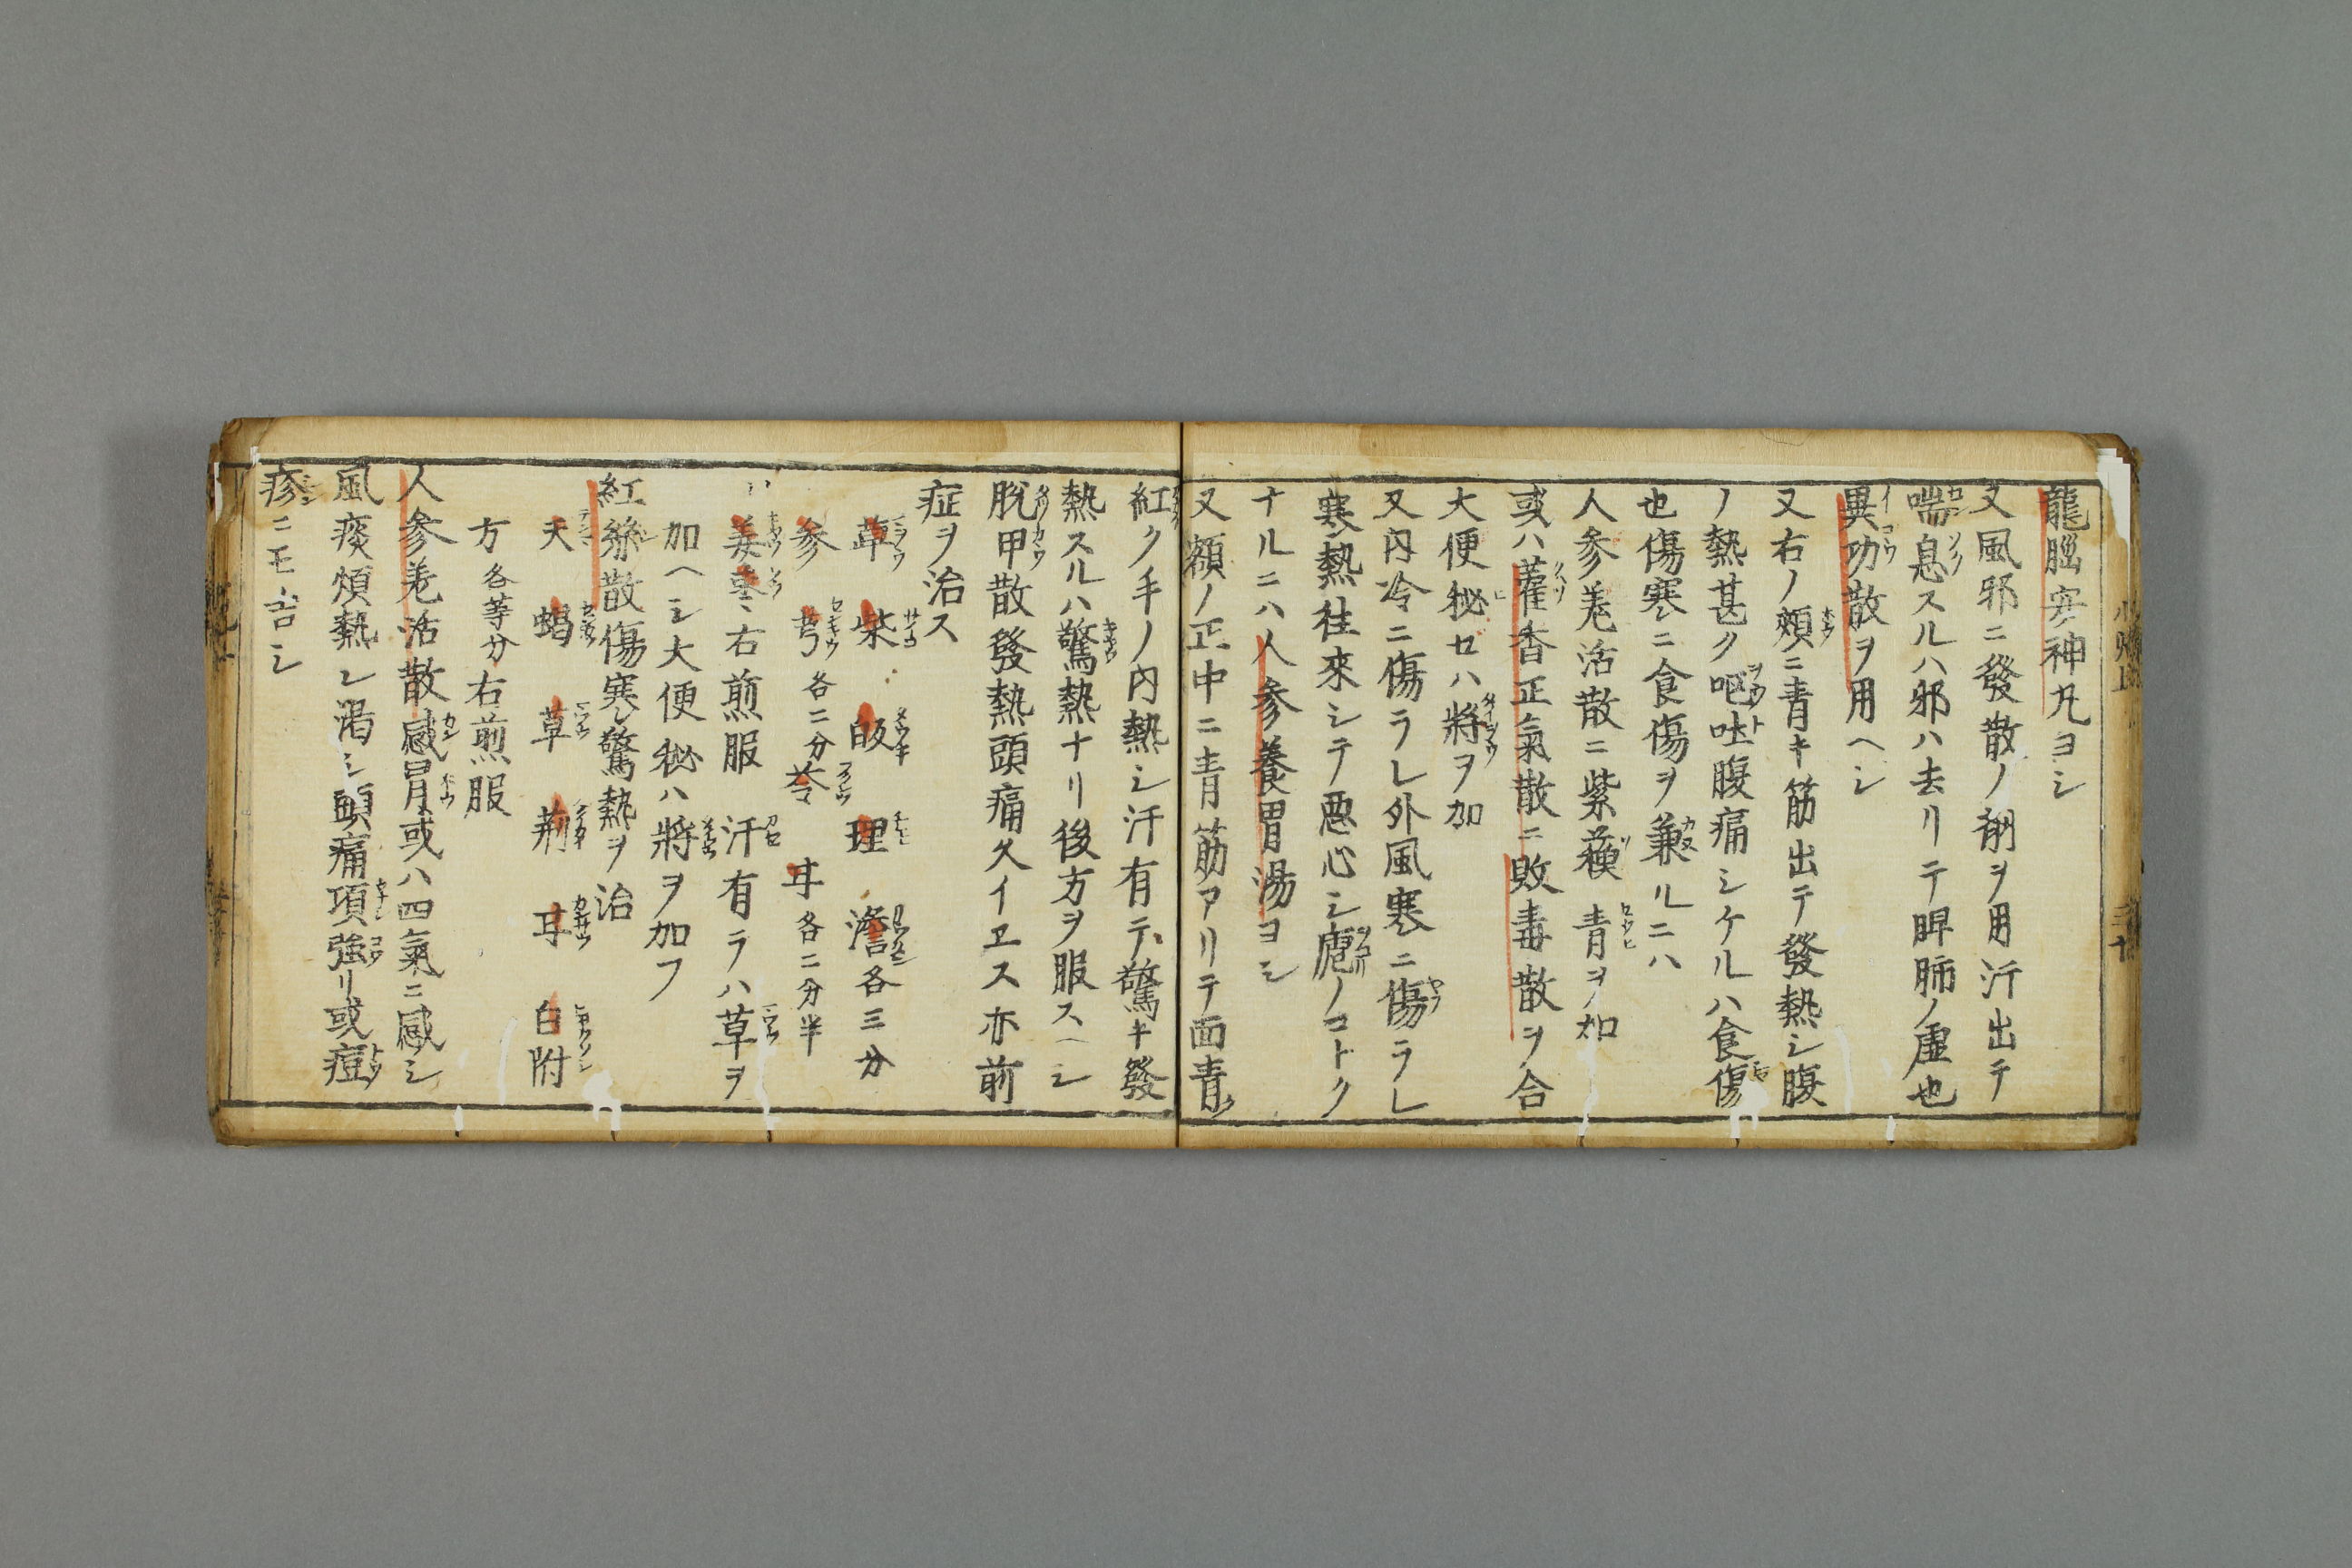 龍腦安神丸ヨシ
又風邪ニ發散ノ剤ヲ用汗出テ
喘息スルハ邪ハ去リテ脾肺ノ虚也
異功散ヲ用ヘシ
又右ノ頬ニ青キ筋出テ發熱シ腹
ノ熱甚ク嘔吐腹痛シケルハ食傷
也傷寒ニ食傷ヲ兼ルニハ
人参羗活散ニ紫蘓 青ヲ加
或ハ藿香正氣散ニ敗毒散ヲ合
大便秘セハ將ヲ加
又内冷ニ傷ラレ外風寒ニ傷ラレ
寒熱往來シテ悪心シ瘧ノコトク
ナルニハ人参養胃湯ヨシ
又額ノ正中ニ青筋アリテ面青ク
紅ク手ノ内熱シ汗有テ驚キ發
熱スルハ驚熱ナリ後方ヲ服スヘシ
脱甲散發熱頭痛久イエス亦前
症ヲ治ス
草 柴 皈 理 澹各三分
参 芎各二分 苓 甘各二分半
姜 棗右煎服 汗有ラハ草ヲ
加ヘシ大便秘ハ將ヲ加フ
紅綿散傷寒驚熱ヲ治
天 蝎 草 荊 甘 白附
方各等分右煎服
人参羗活散感冒或ハ四氣ニ感シ
風痰煩熱シ渇シ頭痛項強リ或痘
疹ニモ吉シ